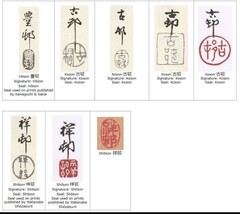 豊邨
古邨
古邨
古邨
古邨
Hōson 豊邨
Signature: Hōson
Seal: Hōson
Seal used on prints published by Kawaguchi & Sakai
Koson 古邨
Signature: Koson
Seal: Koson
Koson 古邨
Signature: Koson
Seal: Koson
Koson 古邨
Signature: Koson
Seal: Koson
Koson 古邨
Signature: Koson
Seal: Koson
祥邨
祥邨
Shōson 祥邨
Signature: Shōson
Seal: Shōson
Seal used on prints published by Watanabe Shōzaburō
Shōson 祥邨
Signature: Shōson
Seal: Shōson
Seal used on prints published by Watanabe Shōzaburō
Shōson 祥邨
Seal: Shōson